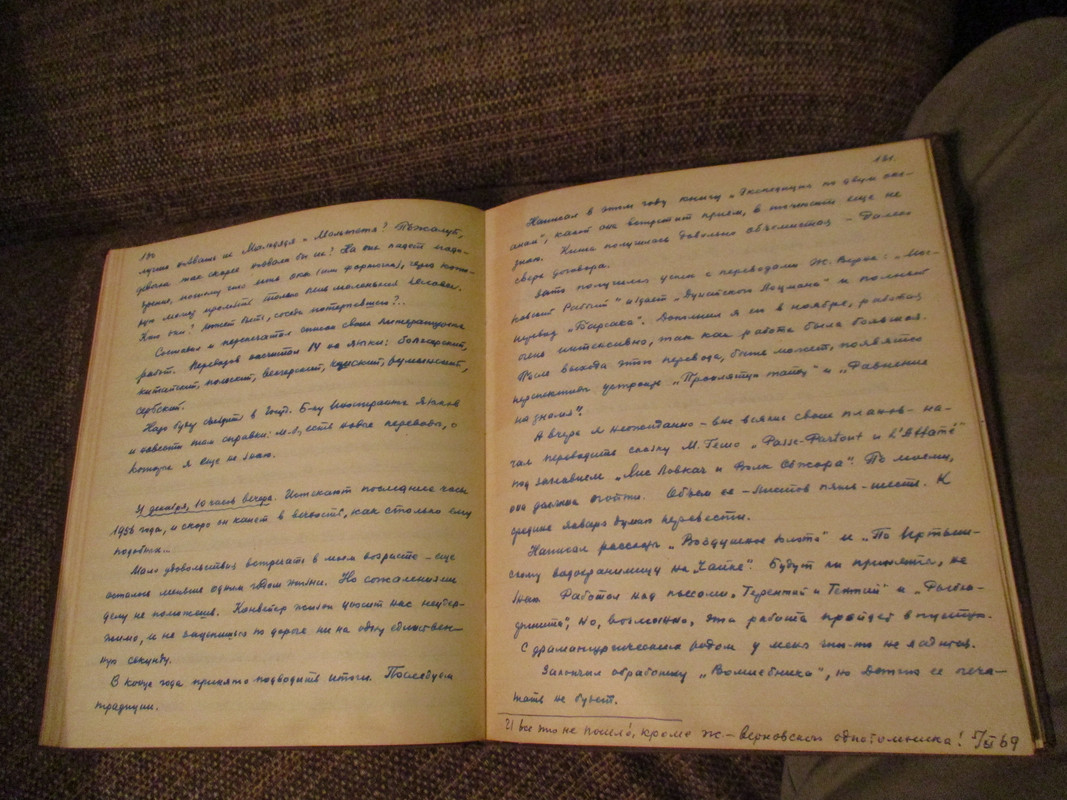 180
лучше отвалит ли Мальдядя и Мальтета? Пожалуй,
девочка так скорее оторвали бы ее! На сие падет подо-
зрение, потому что мала она (или форточка), через кото-
рую может пролезть только очень маленький человек.
Кто они? Может быть, соседи потерпевшего?..
Составил и перепечатал список своих литературных
работ. Переводов насчитал 14 на языки: болгарский,
китайский, польский, венгерский, чешский, румынский,
сербский.
Надо буду съездить в Госуд. Б-ку Иностранных языков
и навести там справки: м.б., есть новые переводы, о
которых я еще не знаю.
31 декабря, 10 часов вечера. Истекают последние часы
1956 года, и скоро он канет в вечность, как столько ему
подобных...
Мало удовольствия встречать в моем возрасте – еще
осталось меньше одним годом жизни. Но сожалениями
делу не поможешь. Конвейер жизни уносит нас неудер-
жимо, и не зацепишься по дороге ни на одну единствен-
ную секунду.
В конце года принято подводить итоги. Последуем
традиции.
181.
Написал в этом году книгу „Экспедиция по двум оке-
анам", какой она встретит прием, в точности еще не
знаю. Книга получилась довольно объемистая – далеко
сверх договора.
Зато получился успех с переводами Ж. Верна: „Мос-
ковский Рабочий" издает „Дунайского Лоцмана" и полный
перевод „Барсака". Выполнил я их в ноябре, работал
очень интенсивно, так как работа была большая.
После выхода этих переводов, быть может, появятся
перспективы устроить „Проклятую шапку" и „Равнение
на знамя".
А вчера я неожиданно – вне всяких своих планов – на-
чал переводить сказку М. Гемо „Passe-Partout и L'Effaré"
под заглавием „Лис Ловкач и Волк Обжора". По-моему,
она должна пойти. Объем ее – листов пять-шесть. К
средине января думаю перевести.
Написал рассказы „Воздушное золото" и „По Верхсин-
скому водохранилищу на Хайке". Будут ли приняты, не
знаю. Работал над пьесами „Терентий и Тентий" и „Розбо-
джитс", но, возможно, эта работа пройдет впустую.
С драматургическим родом у меня что-то не ладится.
Закончил обработку „Волшебника", но Детгиз ее печа-
тать не будет.
И все это не пошло, кроме Ж-Верновского однотомника! 5/XI 69